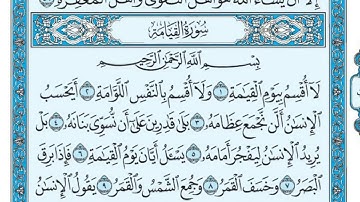 إِلَّا أَن يَشَاءَ اللَّهُ هُوَ أَهْلُ التَّقْوَىٰ وَأَهْلُ الْمَغْفِرَةِ
سُورَةُ الْقِيَامَةِ
بِسْمِ اللَّهِ الرَّحْمَٰنِ الرَّحِيمِ
لَا أُقْسِمُ بِيَوْمِ الْقِيَامَةِ ١ وَلَا أُقْسِمُ بِالنَّفْسِ اللَّوَّامَةِ ٢ أَيَحْسَبُ
الْإِنسَانُ أَلَّن نَّجْمَعَ عِظَامَهُ ٣ بَلَىٰ قَادِرِينَ عَلَىٰ أَن نُّسَوِّيَ بَنَانَهُ ٤ بَلْ
يُرِيدُ الْإِنسَانُ لِيَفْجُرَ أَمَامَهُ ٥ يَسْأَلُ أَيَّانَ يَوْمُ الْقِيَامَةِ ٦ فَإِذَا بَرِقَ
الْبَصَرُ ٧ وَخَسَفَ الْقَمَرُ ٨ وَجُمِعَ الشَّمْسُ وَالْقَمَرُ ٩ يَقُولُ الْإِنسَانُ